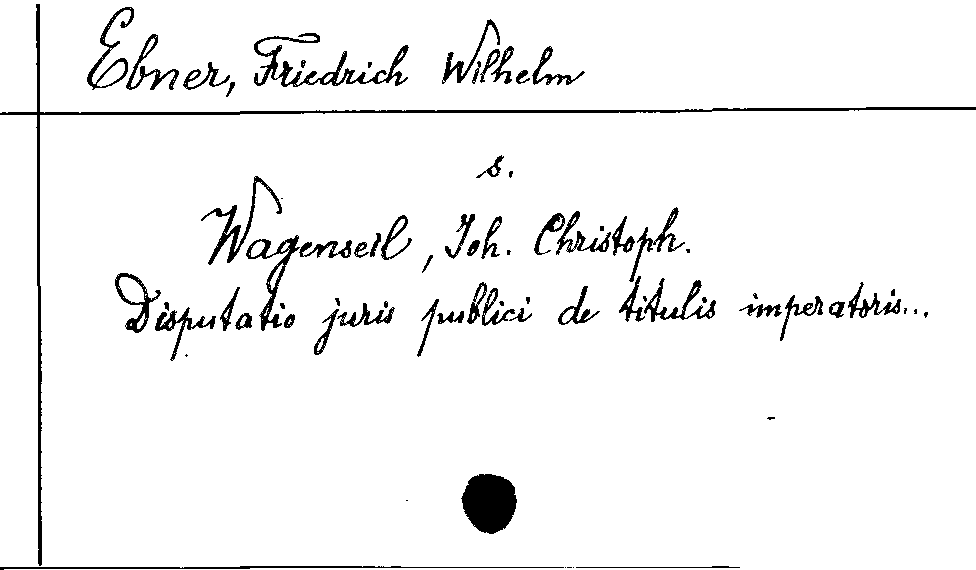 Ebner, Friedrich Wilhelm
s.
Wagenseil, Joh. Christoph.
Disputatio juris publici de titulis imperatoris...